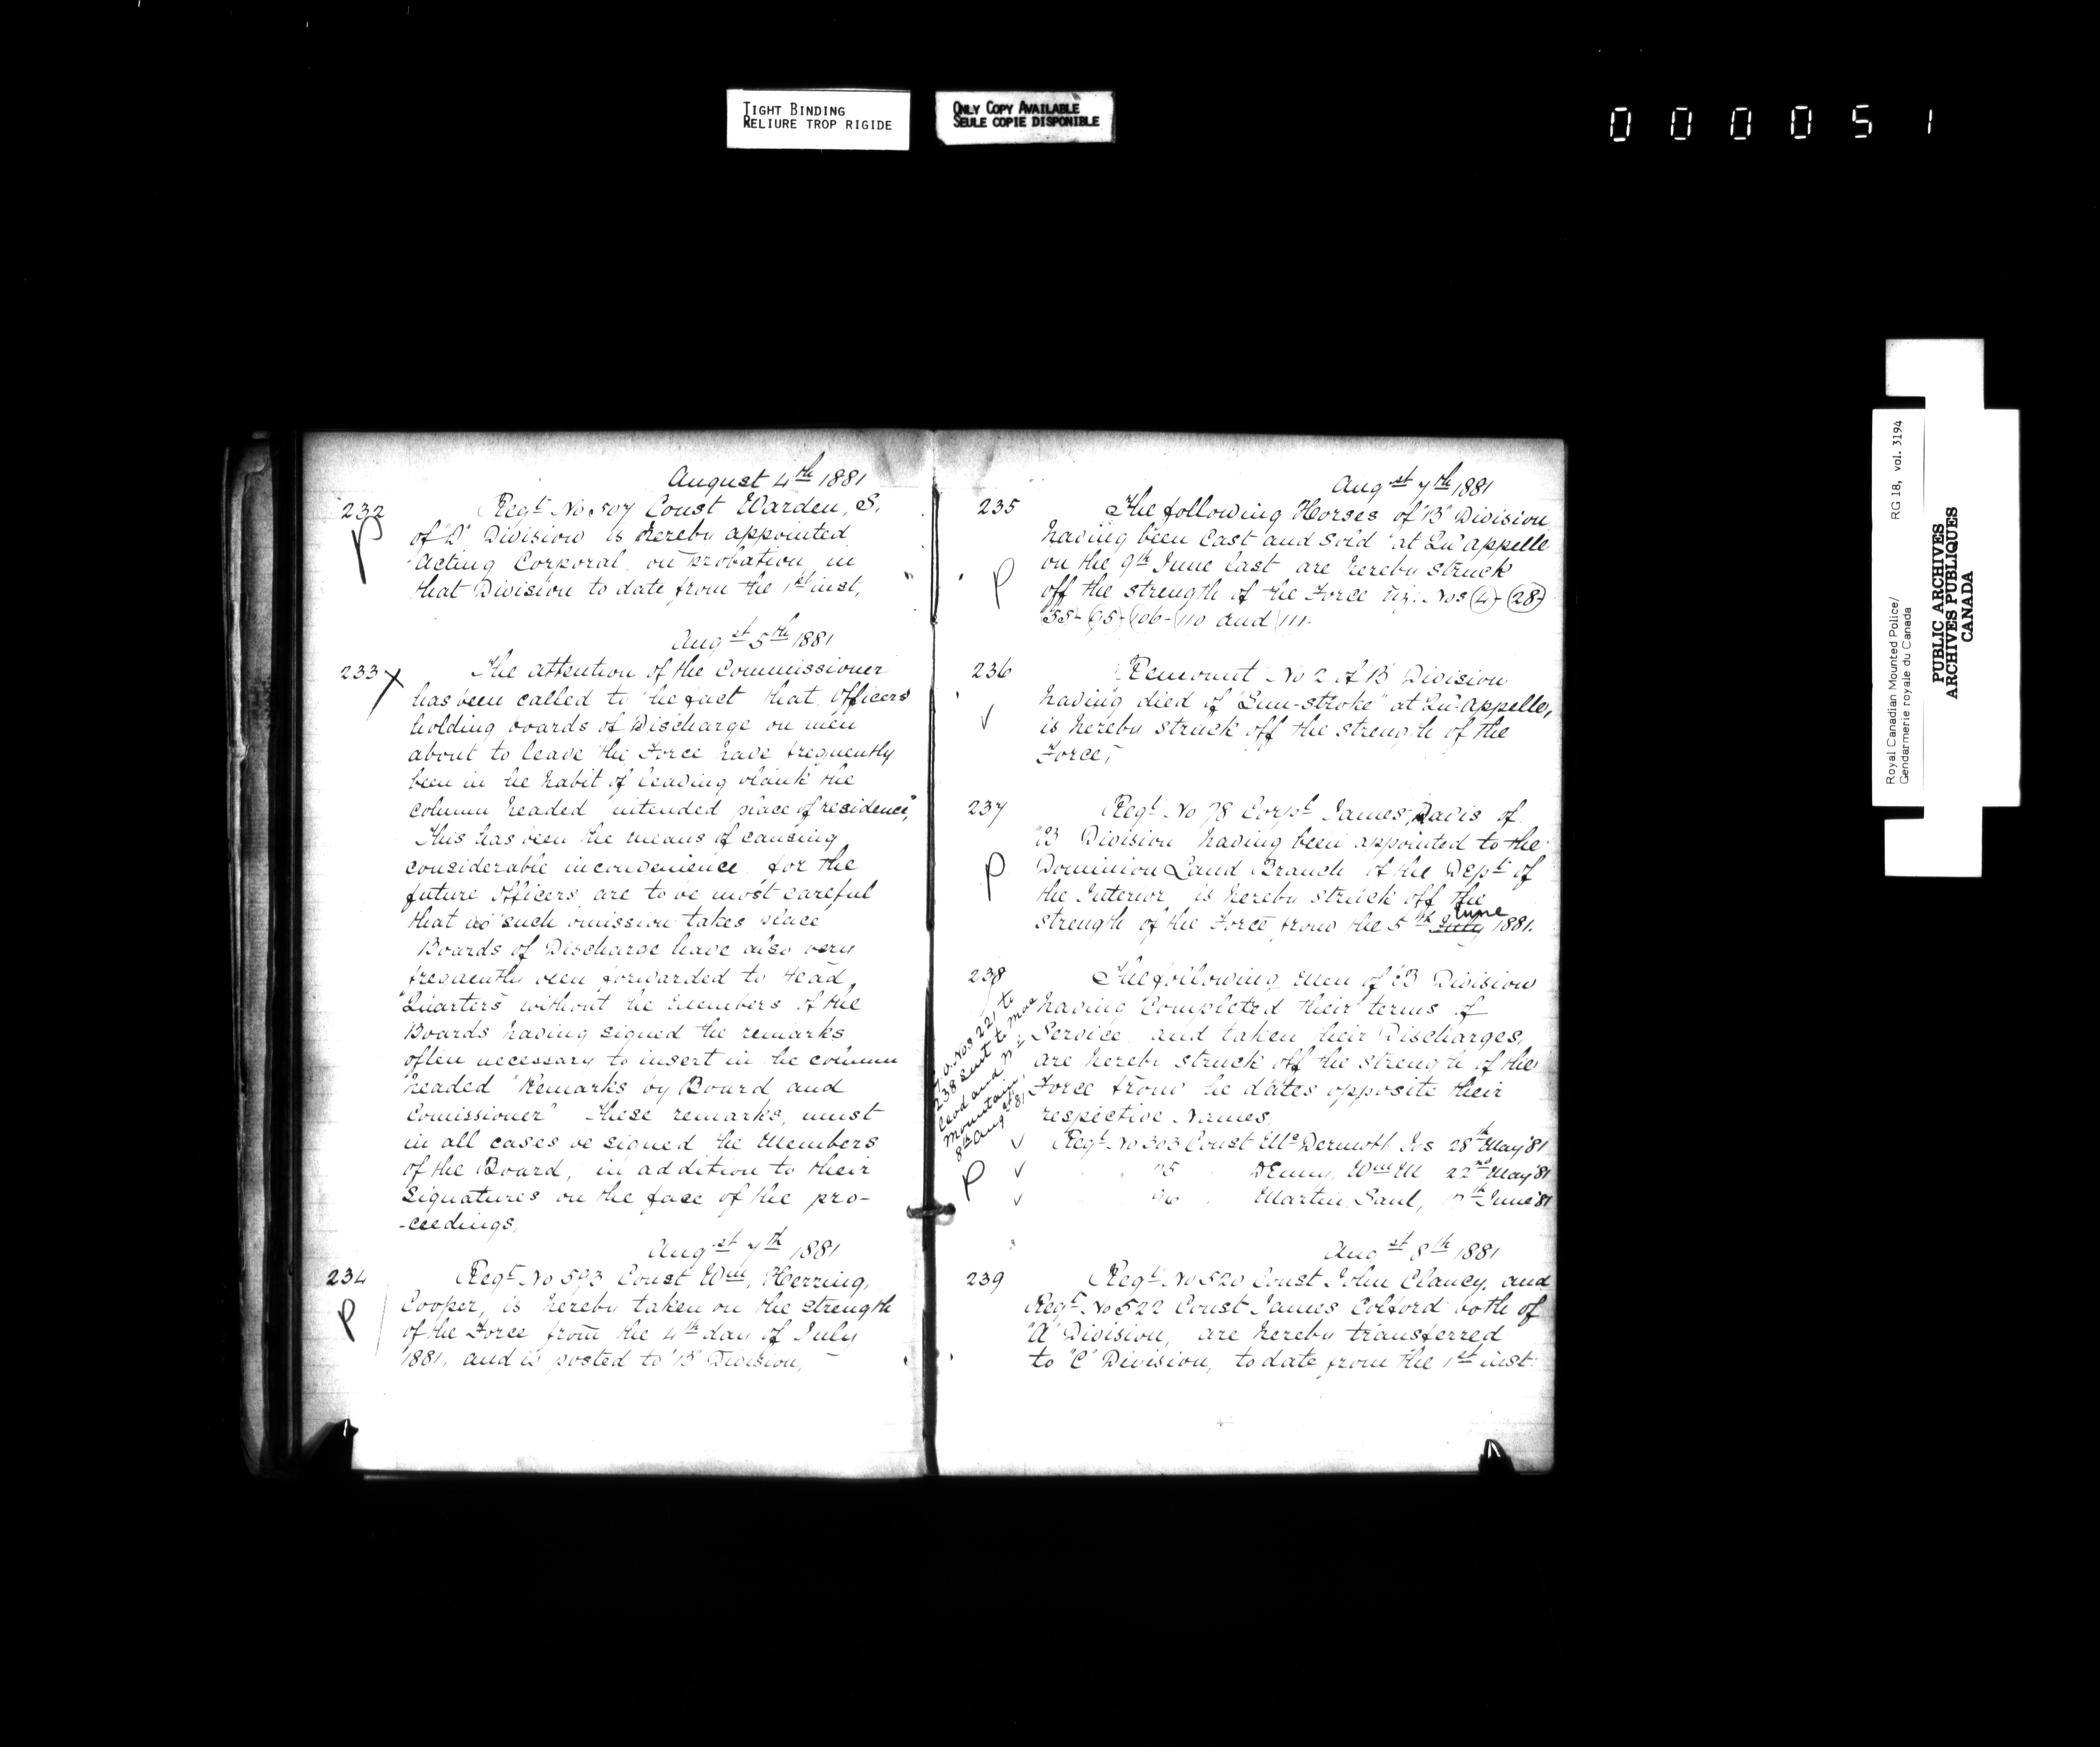 TIGHT BINDING
RELIURE TROP RIGIDE
ONLY COPY AVAILABLE
SEULE COPIE DISPONIBLE
000051
August 4th 1881
232
Regt. No 507 Const Warden, S.
of "D" Division is hereby appointed
Acting Corporal on probation in
that Division to date from the 1st inst,
Augst 5th 1881
233 X
The attention of the Commissioner
has been called to the fact that Officers
holding boards of Discharge on men
about to leave the Force have frequently
been in the habit of leaving blank the
column headed "intended place of residence",
This has been the means of causing
considerable inconvenience for the
future Officers are to be most careful
that no such omission takes place
Boards of Discharge have also very
frequently been forwarded to Head
Quarters without the Members of the
Boards having signed the remarks
often necessary to insert in the column
headed "Remarks by Board and
Comissioner" these remarks, must
in all cases be signed the Members
of the Board, in addition to their
signatures on the face of the pro-
-ceedings,
Augst 7th 1881
234
P
Regt No 593 Const Wm, Herring,
Cooper, is hereby taken on the strength
of the Force from the 4th day of July
1881, and is posted to "B" Division,
Augst 7th 1881
235
P
The following Horses of "B" Division
having been Cast and Sold at Qu'appelle
on the 9th June last are hereby struck
off the strength of the Force viz. Nos (28)
55- 95- 106- 110 and 111.
236
Remount No 2 of "B" Division
having died of "Sun-stroke" at Qu'Appelle,
is hereby struck off the strength of the
Force,
237
P
Regt. No 78 Corpl James Davis of
"B" Division having been appointed to the
Dominion Land Branch of the Dept of
the Interior is hereby struck off the
strength of the Force from the 5th July June 1881.
238
The following Men of "B" Division
having Completed their terms of
Service and taken their Discharges,
are hereby struck off the strength of the
Force from the dates opposite their
respective Names,
G.O. Nos 221 to
238 Sent to
and
Mountain
8th Augst 81
P
Regt. No 303 Const McDermott Jos 28th May '81
Denny, Wm M 22nd May '81
Martin, Saul, June '81
Augst 8th 1881
239
Regt. No 520 Const John Clancy, and
Regt. No 522 Const James Colford both of
"A" Division, are hereby transferred
to "C" Division, to date from the 1st inst.
Royal Canadian Mounted Police/ RG 18, vol. 3194
Gendarmerie royale du Canada
PUBLIC ARCHIVES
ARCHIVES PUBLIQUES
CANADA